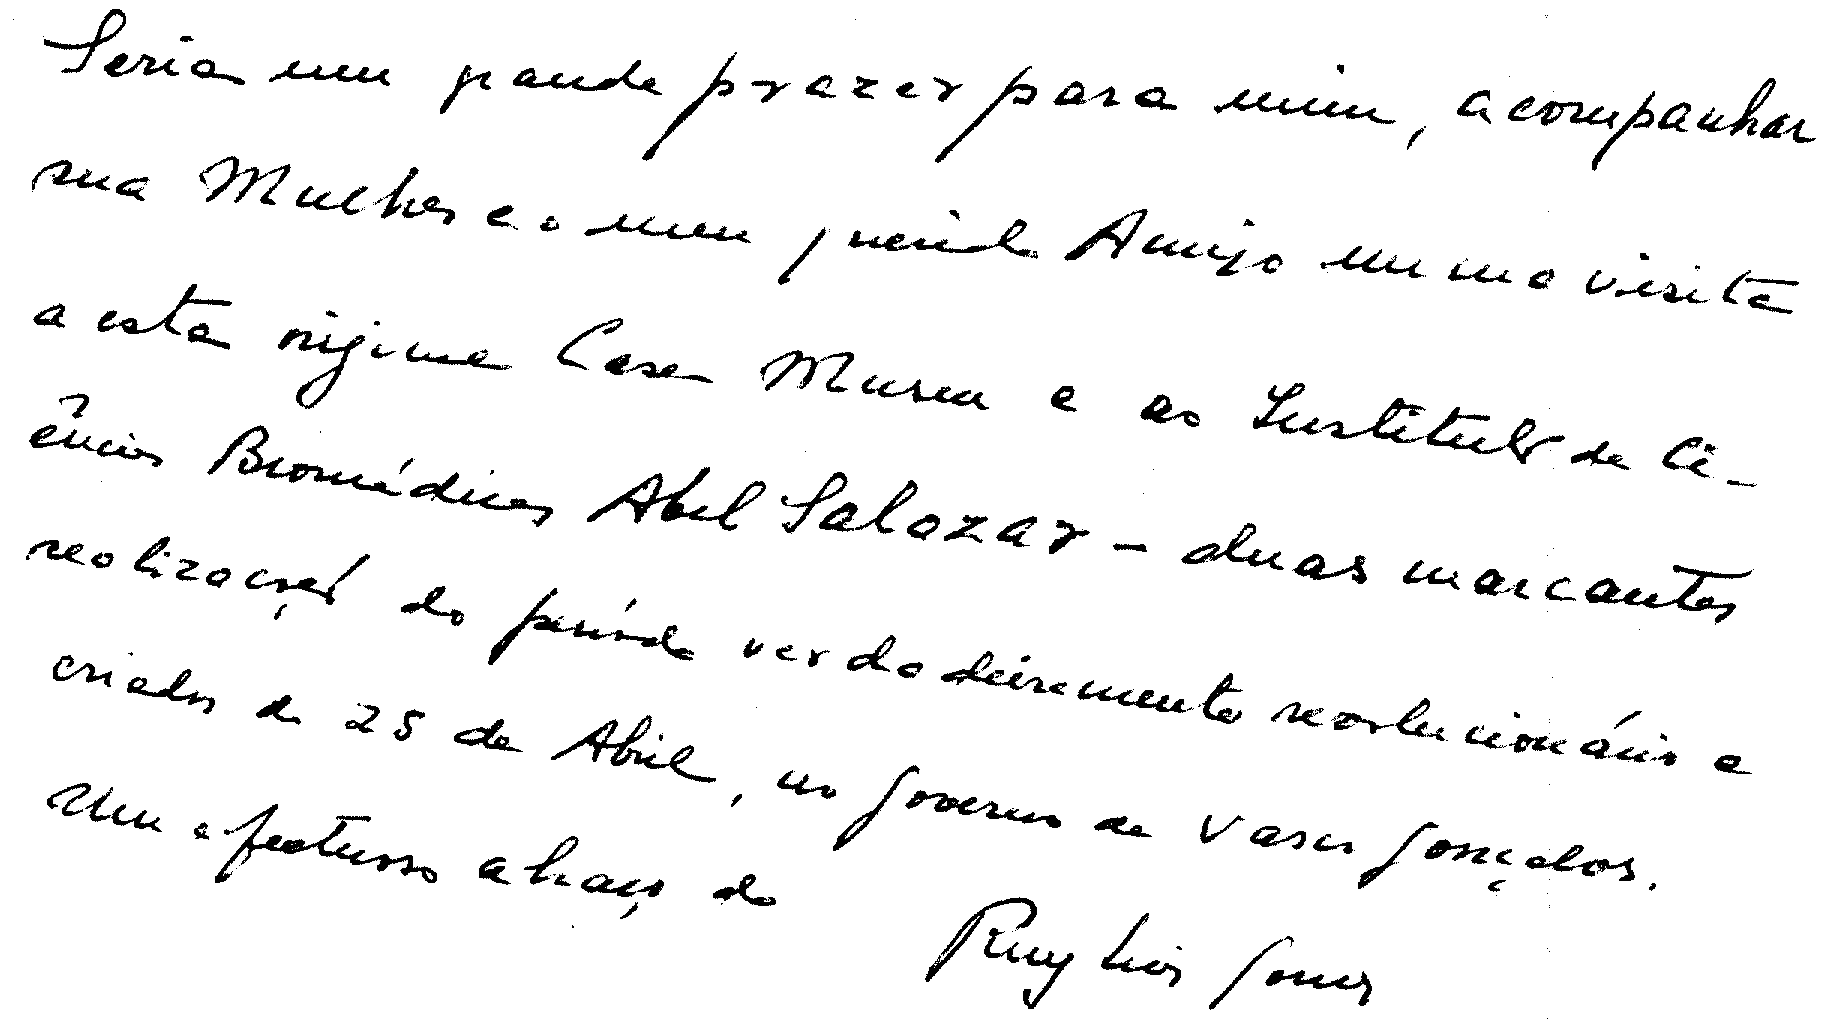 Seria um grande prazer para mim, acompanhar
sua Mulher e o meu querido Amigo numa visita
a esta Casa Museu e ao Instituto de Ci-
ências Biomédicas Abel Salazar – duas marcantes
realizações do período verdadeiramente revolucionário e
criador de 25 de Abril, no Governo de Vasco Gonçalves.
Um afectuoso abraço do
Ruy Luís Gomes